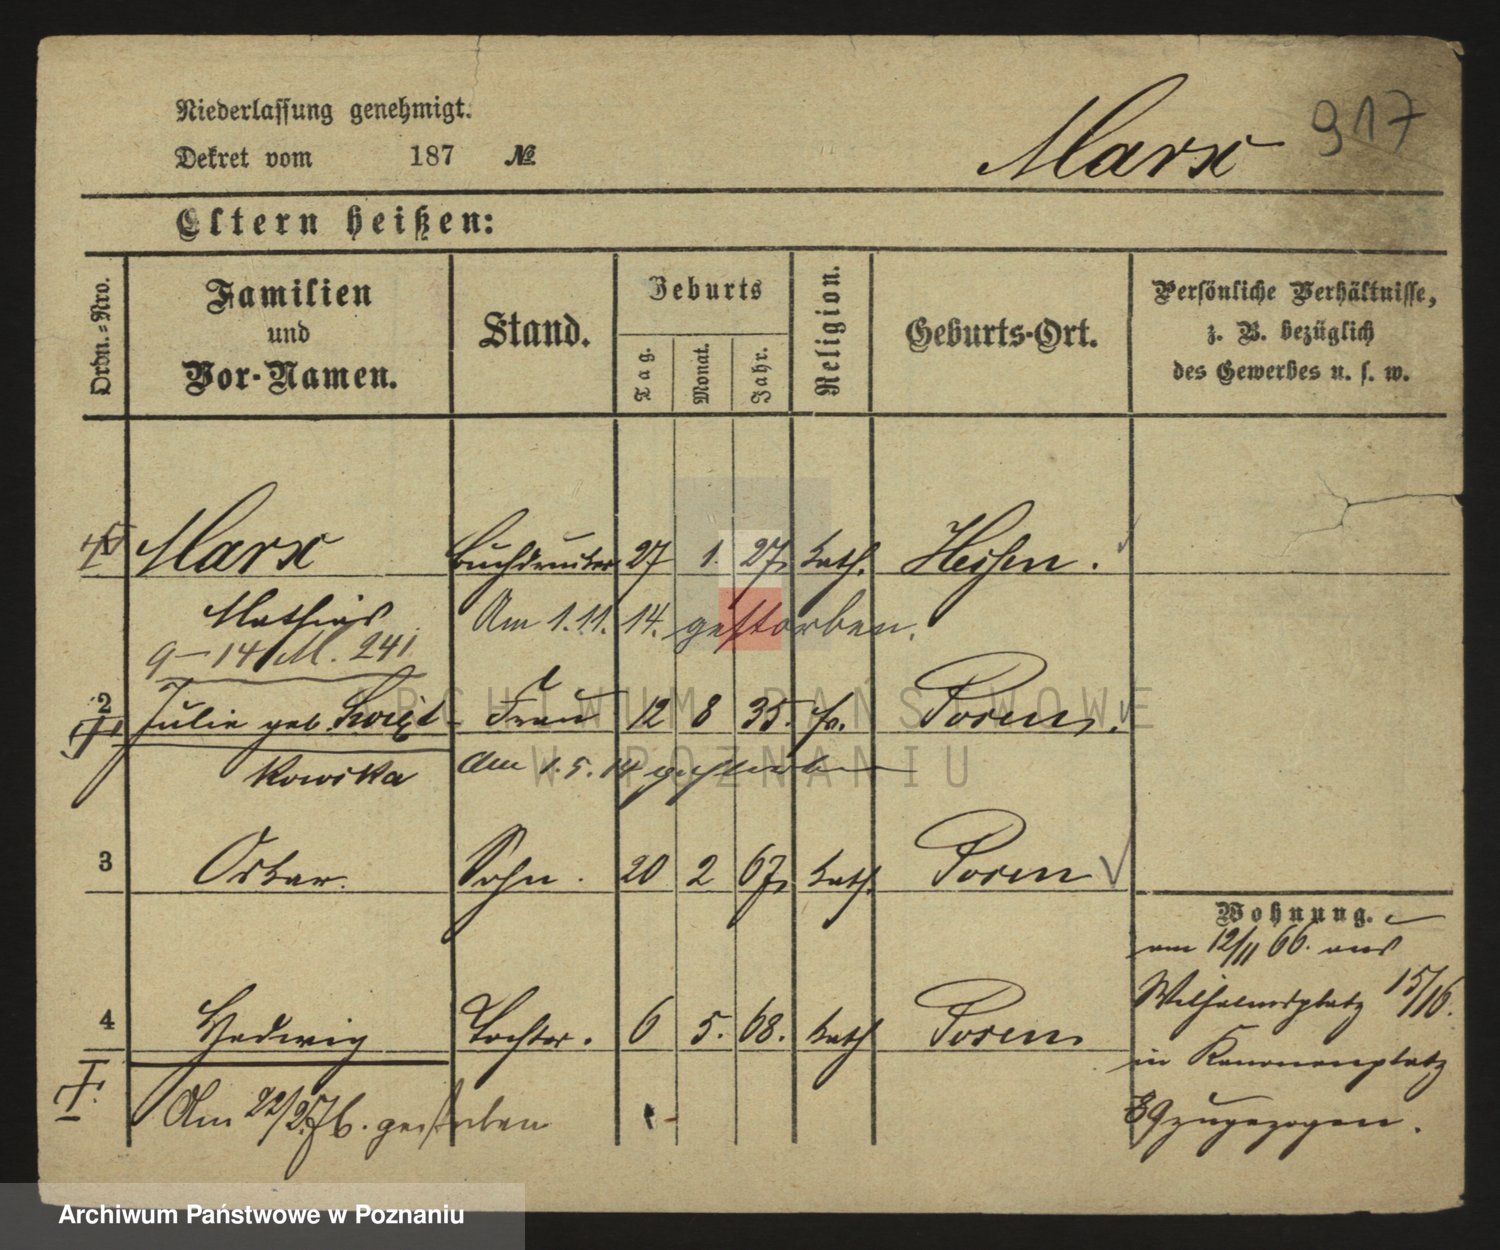 Niederlassung genehmigt.
Dekret vom 187 №
Marx 917
Eltern heißen:
Ordn.-Nro.
Familien
und
Vor-Namen.
Stand.
Geburts
Tag.
Monat.
Jahr.
Religion.
Geburts-Ort.
Persönliche Verhältnisse,
z. B. bezüglich
des Gewerbes u. s. w.
Marx Buchdrucker 27 1. 27. kath.
Mathias Am 1.11.14. gestorben.
9-14 M. 241
2 Julie geb. Frau 12 8 35. Posen.
kowska Am 1.5.14 gestorben
3 Oskar. Sohn. 20 2 67. kath. Posen
Wohnung.
am 12/11 66. aus
Wilhelmsplatz 15/16.
4 Hedwig Tochter. 6 5. 68. kath Posen
in Kanonenplatz
zugezogen.
Am 22/2.76. gestorben
ARCHIWUM PAŃSTWOWE
W POZNANIU
Archiwum Państwowe w Poznaniu